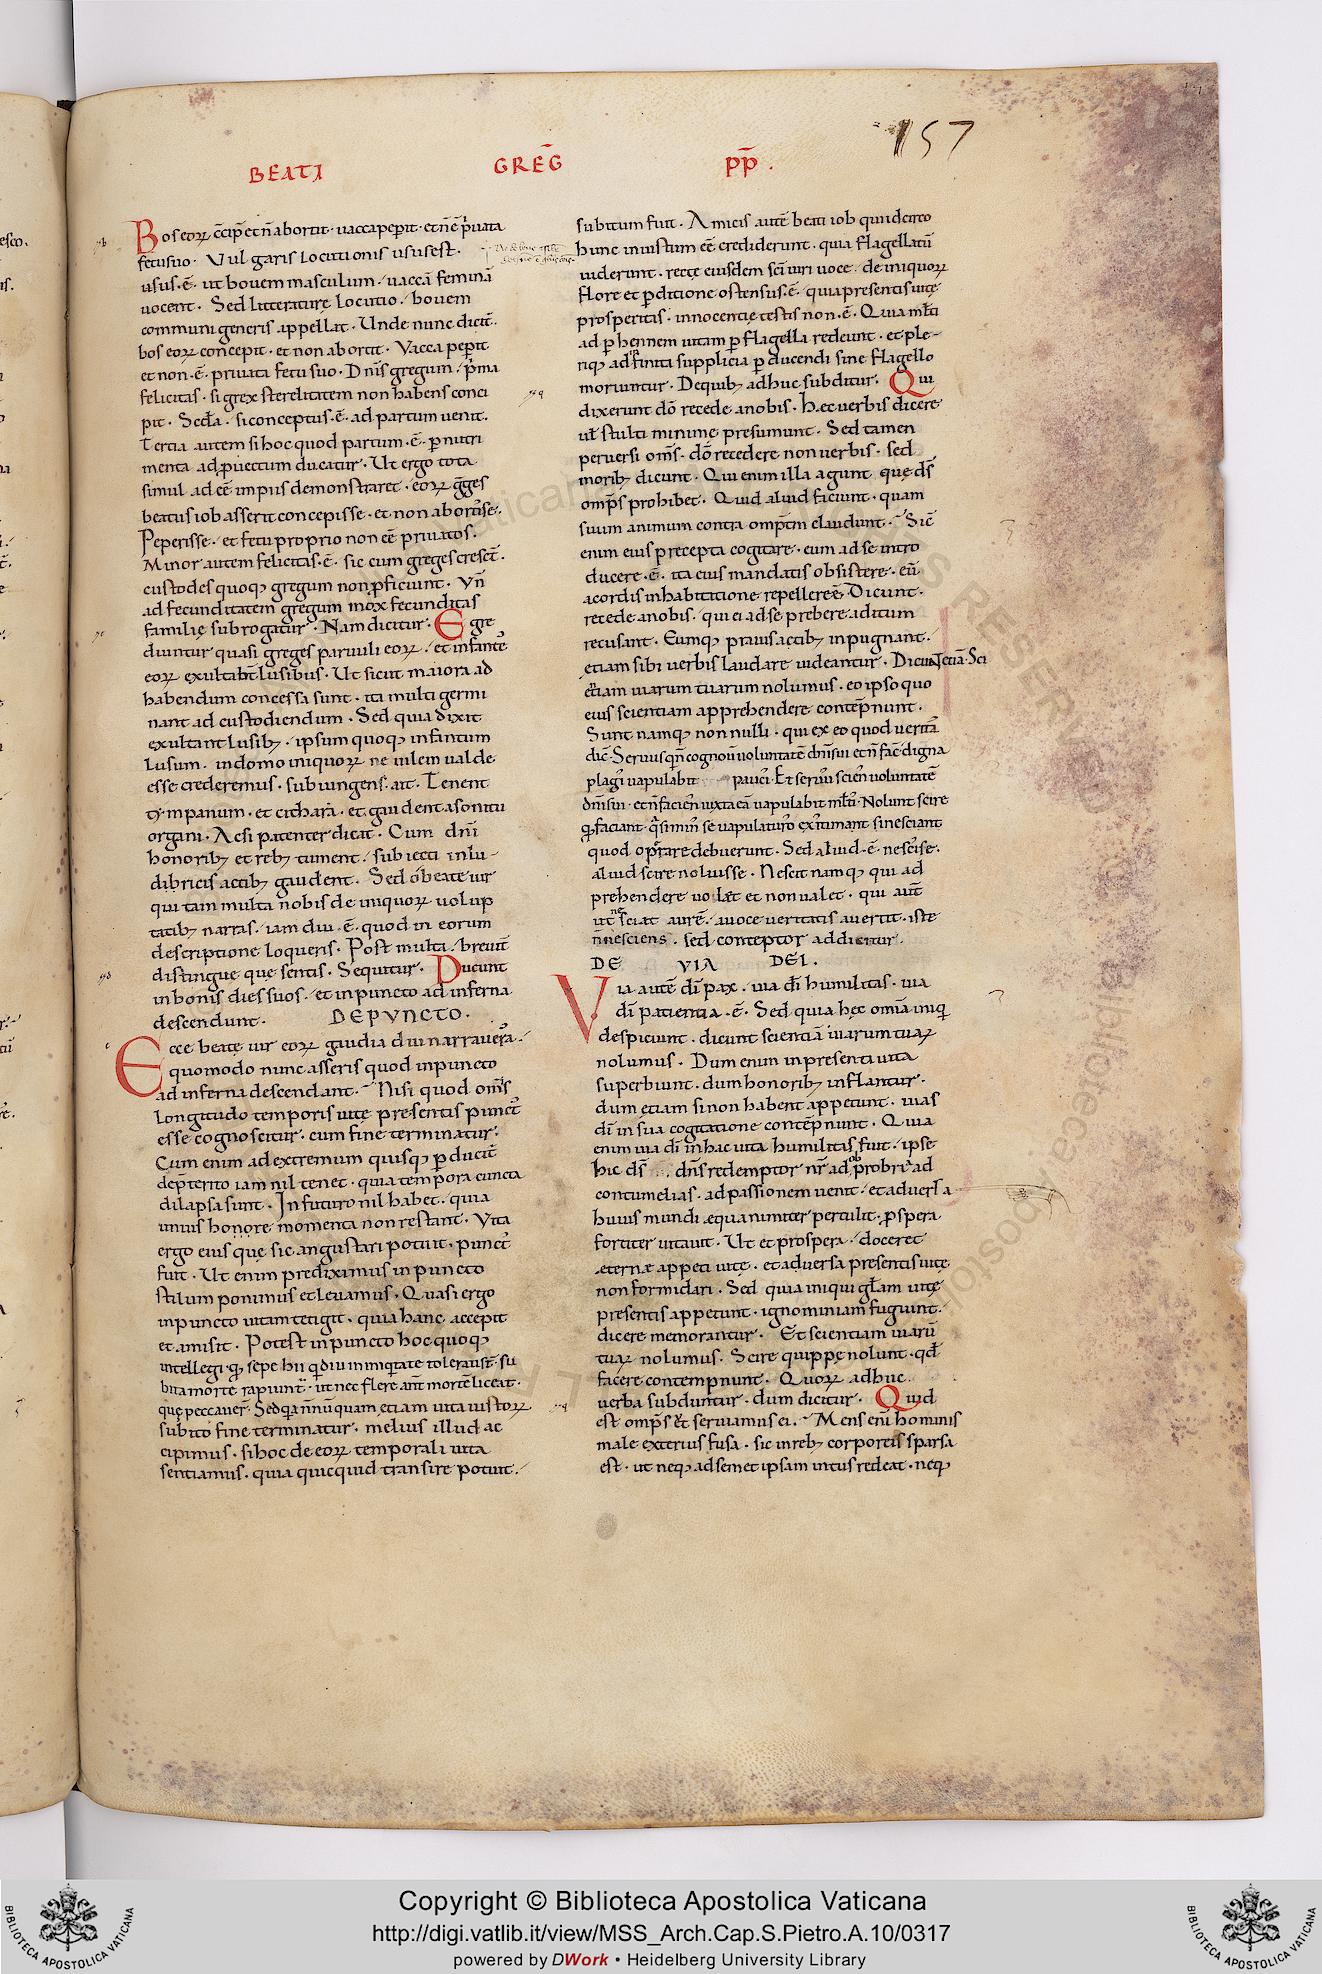 157
BEATI GREḠ PP̄.
Bos eoꝝ c̄cip̄ et n̄ abortit · uacca pep̄it · et n̄ ē p̄uata
fetu suo · Vulgaris locutionis usus est ·
usus · ē · ut bouem masculum · uaccā feminā
uocent · Sed litteraturę locutio · bouem
communi generis appellat · Unde nunc dicit̄ ·
bos eoꝝ concepit · et non abortit · Vacca pep̄it
et non · ē · priuata fetu suo · Dn̄is gregum · p̄ma
felicitas · si grex sterelitatem non habens conci
pit · Scd̄a · si conceptus · ē · ad partum uenit ·
Tertia autem si hoc quod partum · ē · p̱ nutri
menta ad p̱uectum ducatur · Ut ergo tota
simul adēē impiis demonstraret · eoꝝ ḡges
beatus iob asserit concepisse · et non abortisse ·
Peperisse · et fetu proprio non ēē priuatos ·
Minor autem felicitas · ē · sic cum greges cresct̄ ·
custodes quoqꝫ gregum non p̱ficiunt · Vn̄
ad fecunditatem gregum mox fecunditas
familię subrogatur · Nam dicitur · Egre
diuntur quasi greges paruuli eoꝝ · et infantes
eoꝝ exultabt̄ lusibus · Ut sicut maiora ad
habendum concessa sunt · ita multi germi
nant ad custodiendum · Sed quia dixit
exultant lusibꝫ · ipsum quoqꝫ infantum
lusum · in domo iniquoꝝ ne uilem ualde
esse crederemus · subiungens · ait · Tenent
tympanum · et citharā · et gaudent a sonitu
organi · Acsi patenter dicat · Cum dn̄i
honoribꝫ et rebꝫ tument · subiecti in lu-
dibricis actibꝫ gaudent · Sed o beate uir
qui tam multa nobis de iniquoꝝ uolup
tatibꝫ narras · iam diu · ē · quod in eorum
descriptione loqueris · Post multa · breuit̄
distingue que sentis · Sequitur · Ducunt
in bonis dies suos · et in puncto ad inferna
descendunt · DE PVNCTO ·
Ecce beate uir eoꝝ gaudia diu narraueras ·
quomodo nunc asseris quod in puncto
ad inferna descendant · Nisi quod om̄s
longitudo temporis uite presentis punct̄
esse cognoscitur · cum fine terminatur ·
Cum enim ad extremum quisqꝫ p̱ducit̄
de p̄terito iam nil tenet · quia tempora cuncta
dilapsa sunt · In futuro nil habet · quia
unius honore momenta non restant · Vita
ergo eius quę sic angustari potuit · punct̄
fuit · Ut enim prediximus in puncto
stilum ponimus et leuamus · Quasi ergo
in puncto uitam tetigit · quia hanc accepit
et amisit · Potest in puncto hoc quoqꝫ
intellegi · qꝫ sepe hii q̄ diu in iniqtate tolerant̄ · su
bita morte rapiunt̄ · ut nec flere ante mortē liceat ·
quę peccauer̄ · Sed q̄a n̄nūquam etiam uita iustoꝝ
subito fine terminatur · melius illud ac
cipimus · si hoc de eoꝝ temporali uita
sentiamus · quia quicquid transire potuit ·
subitum fuit · Amicis autē beati iob qui idcirco
hunc iniustum ēē crediderunt · quia flagellatū
uiderunt · recte eiusdem sc̄i uiri uoce · de iniquoꝝ
flore et p̱ditione ostensus · ē · quia presentis uitę
prosperitas · innocentię testis non · ē · Quia ml̄ti
ad p̱hennem uitam p̱ flagella redeunt · et ple-
riqꝫ ad īfinita supplicia p̱ducendi sine flagello
moriuntur · De quibꝫ adhuc subditur · Qui
dixerunt dō recede a nobis · Hęc uerbis dicere
ul̄ stulti minime presumunt · Sed tamen
peruersi om̄s · dō recedere non uerbis · sed
moribꝫ dicunt · Qui enim illa agunt · quę ds̄
omp̄s prohibet · Quid aliud faciunt · quam
suum animum contra omp̄tm claudunt · Sic̄
enim eius precepta cogitare · eum ad se intro
ducere · ē · ita eius mandatis obsistere · eū
a cordis inhabitatione repellere ē · Dicunt ·
recede a nobis · qui ei ad se prebere aditum
recusant · Eumqꝫ prauis actibꝫ inpugnant ·
etiam si hi uerbis laudare uideantur · Dicunt etiā · Sci
entiam uiarum tuarum nolumus · eo ipso quo
eius scientiam apprehendere contēpnunt ·
Sunt namqꝫ non nulli · qui ex eo quod ueritas
dic̄ · Seruus q̄ n̄ cognouit uoluntatē dn̄i sui et n̄ fac̄ digna
plagis uapulabit paucis · Et seruus sciens uoluntatē
dn̄i sui · et n̄ faciens iuxta eā uapulabit ml̄tis · Nolunt scire
q̄ faciant · q̄si min̄ se uapulaturos exstimant si nesciant
quod operare debuerunt · Sed aliud · ē · nescisse ·
aliud scire noluisse · Nescit namqꝫ qui ad
prehendere uolēt et non ualet · qui aut̄
ut nesciat aurē · a uoce ueritatis auertit · iste
n̄ nesciens · sed conteptor addicitur ·
DE VIA DEI ·
Via autē dī pax · uia dī humilitas · uia
dī patientia · ē · Sed quia hęc omīa iniqi
despiciunt · dicunt scientiā uiarum tuaꝝ
nolumus · Dum enim in presenti uita
superbiunt · dum honoribꝫ inflantur ·
dum etiam si non habent appetunt · uias
dī in sua cogitatione contēpnunt · Quia
enim uia dī in hac uita humilitas fuit · ipse
hic ds̄ dn̄s redemptor nr̄ ad obprobria ad
contumelias · ad passionem uenit · et aduersa
huius mundi ęquanimiter pertulit · p̱spera
fortiter uitauit · Ut et prospera · doceret
ęternę appeti uitę · et aduersa presentis uitę
non formidari · Sed quia iniqui gl̄am uitę
presentis appetunt · ignominiam fugiunt ·
dicere memorantur · Et scientiam uiarū
tuaꝝ nolumus · Scire quippe nolunt · qd̄
facere contempnunt · Quoꝝ adhuc
uerba subduntur · dum dicitur · Quid
est omp̄s ut seruiamus ei · Mens enī hominis
male exterius fusa · sic in rebꝫ corporeis sparsa
est · ut neqꝫ ad semet ipsam intus redeat · neqꝫ
Copyright © Biblioteca Apostolica Vaticana
http://digi.vatlib.it/view/MSS_Arch.Cap.S.Pietro.A.10/0317
powered by DWork • Heidelberg University Library
BIBLIOTECA APOSTOLICA VATICANA
BIBLIOTECA APOSTOLICA VATICANA